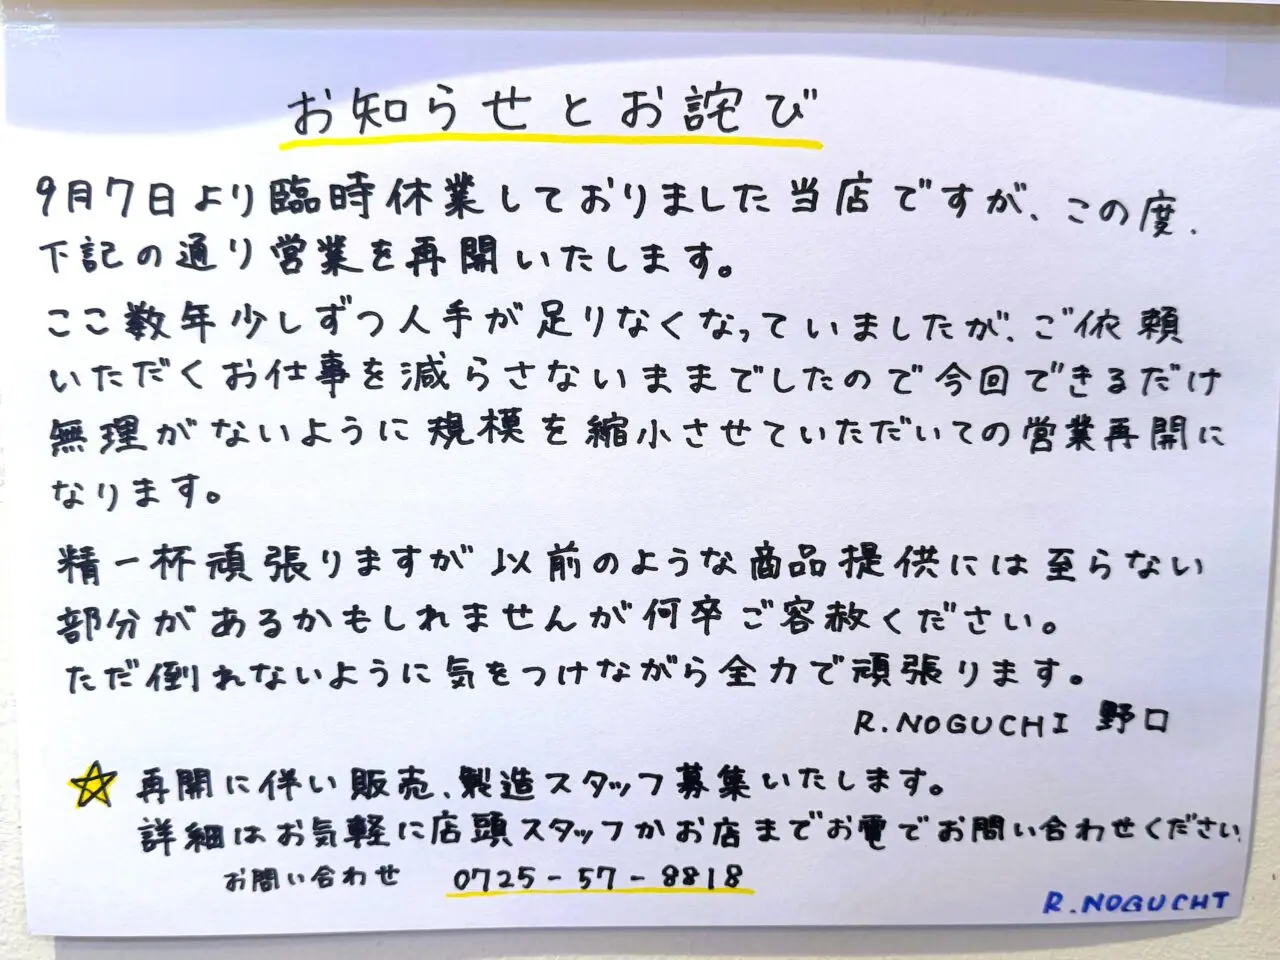 お知らせとお詫び
9月7日より臨時休業しておりました当店ですが、この度、
下記の通り営業を再開いたします。
ここ数年少しずつ人手が足りなくなっていましたが、ご依頼
いただくお仕事を減らさないままでしたので今回できるだけ
無理がないように規模を縮小させていただいての営業再開に
なります。
精一杯頑張りますが以前のような商品提供には至らない
部分があるかもしれませんが何卒ご容赦ください。
ただ倒れないように気をつけながら全力で頑張ります。
R.NOGUCHI 野口
再開に伴い販売、製造スタッフ募集いたします。
詳細はお気軽に店頭スタッフかお店までお電でお問い合わせください
お問い合わせ 0725-57-8818
R.NOGUCHI